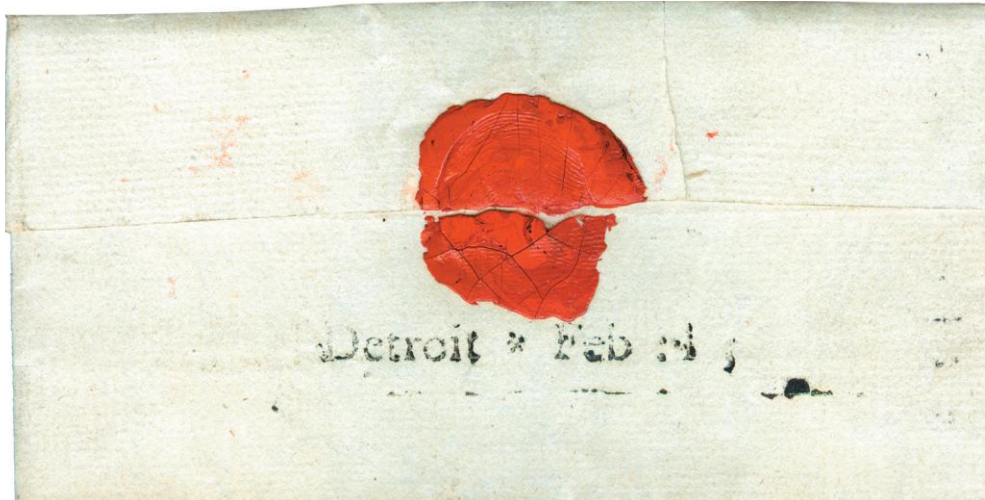 Detroit * Feb